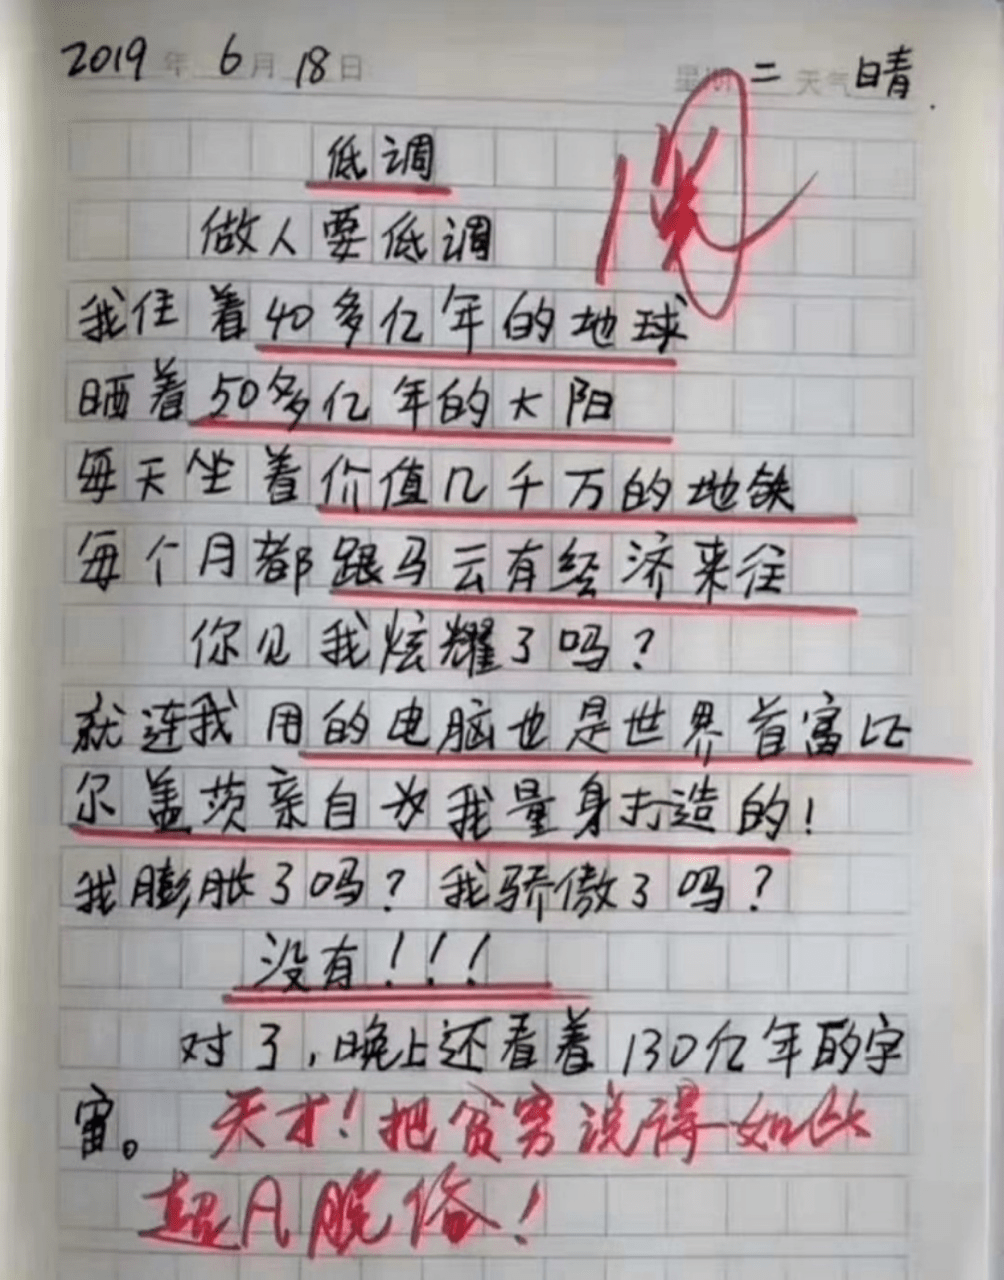 2019年 6月 18日 星期二 天气 晴.
低调
做人要低调
我住着40多亿年的地球
晒着50多亿年的大阳
每天坐着价值几千万的地铁
每个月都跟马云有经济来往
你见我炫耀了吗?
就连我用的电脑也是世界首富比
尔盖茨亲自为我量身打造的!
我膨胀了吗?我骄傲了吗?
没有!!!
对了,晚上还看着130亿年的宇
宙。天才!把贫穷说得如此
超凡脱俗!